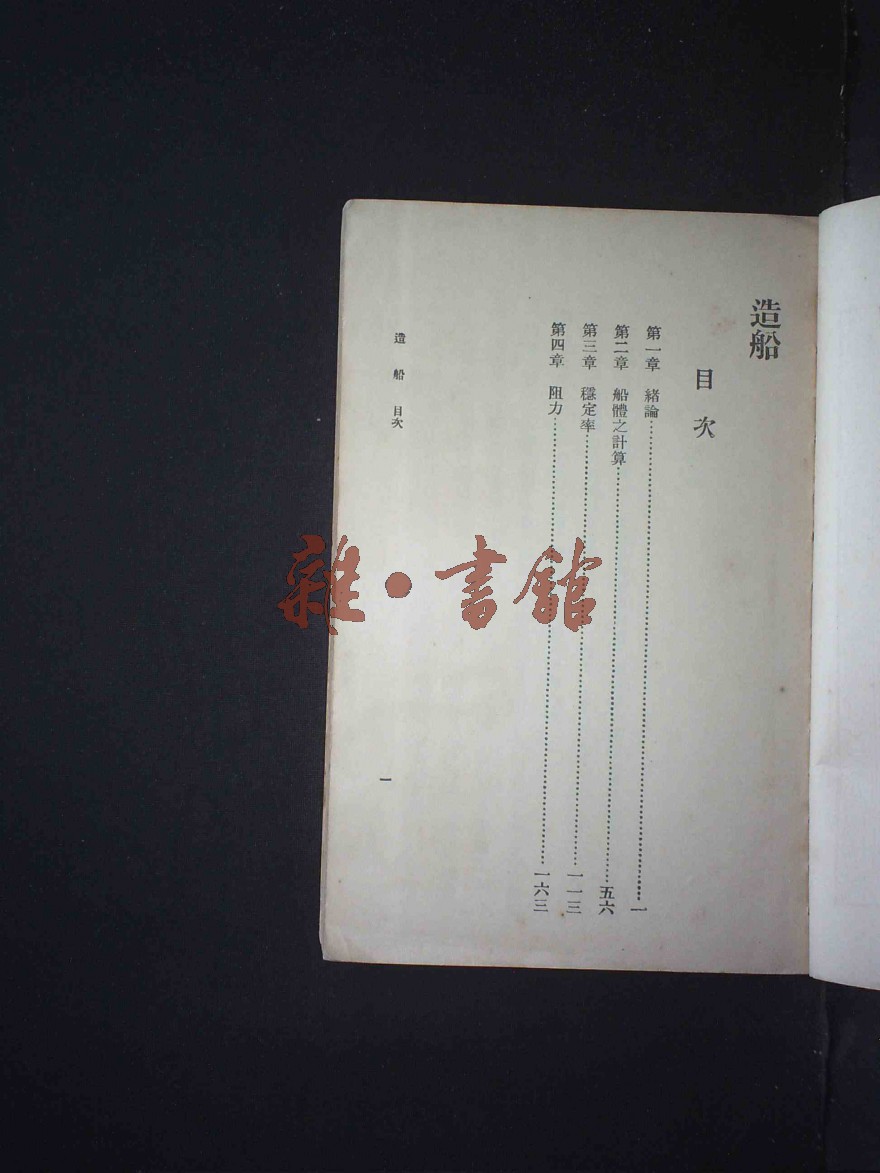 造船
目次
第一章 緒論……………………一
第二章 船體之計算……………………五六
第三章 穩定率……………………一一三
第四章 阻力……………………一六三
造船 目次
一
雜·書館